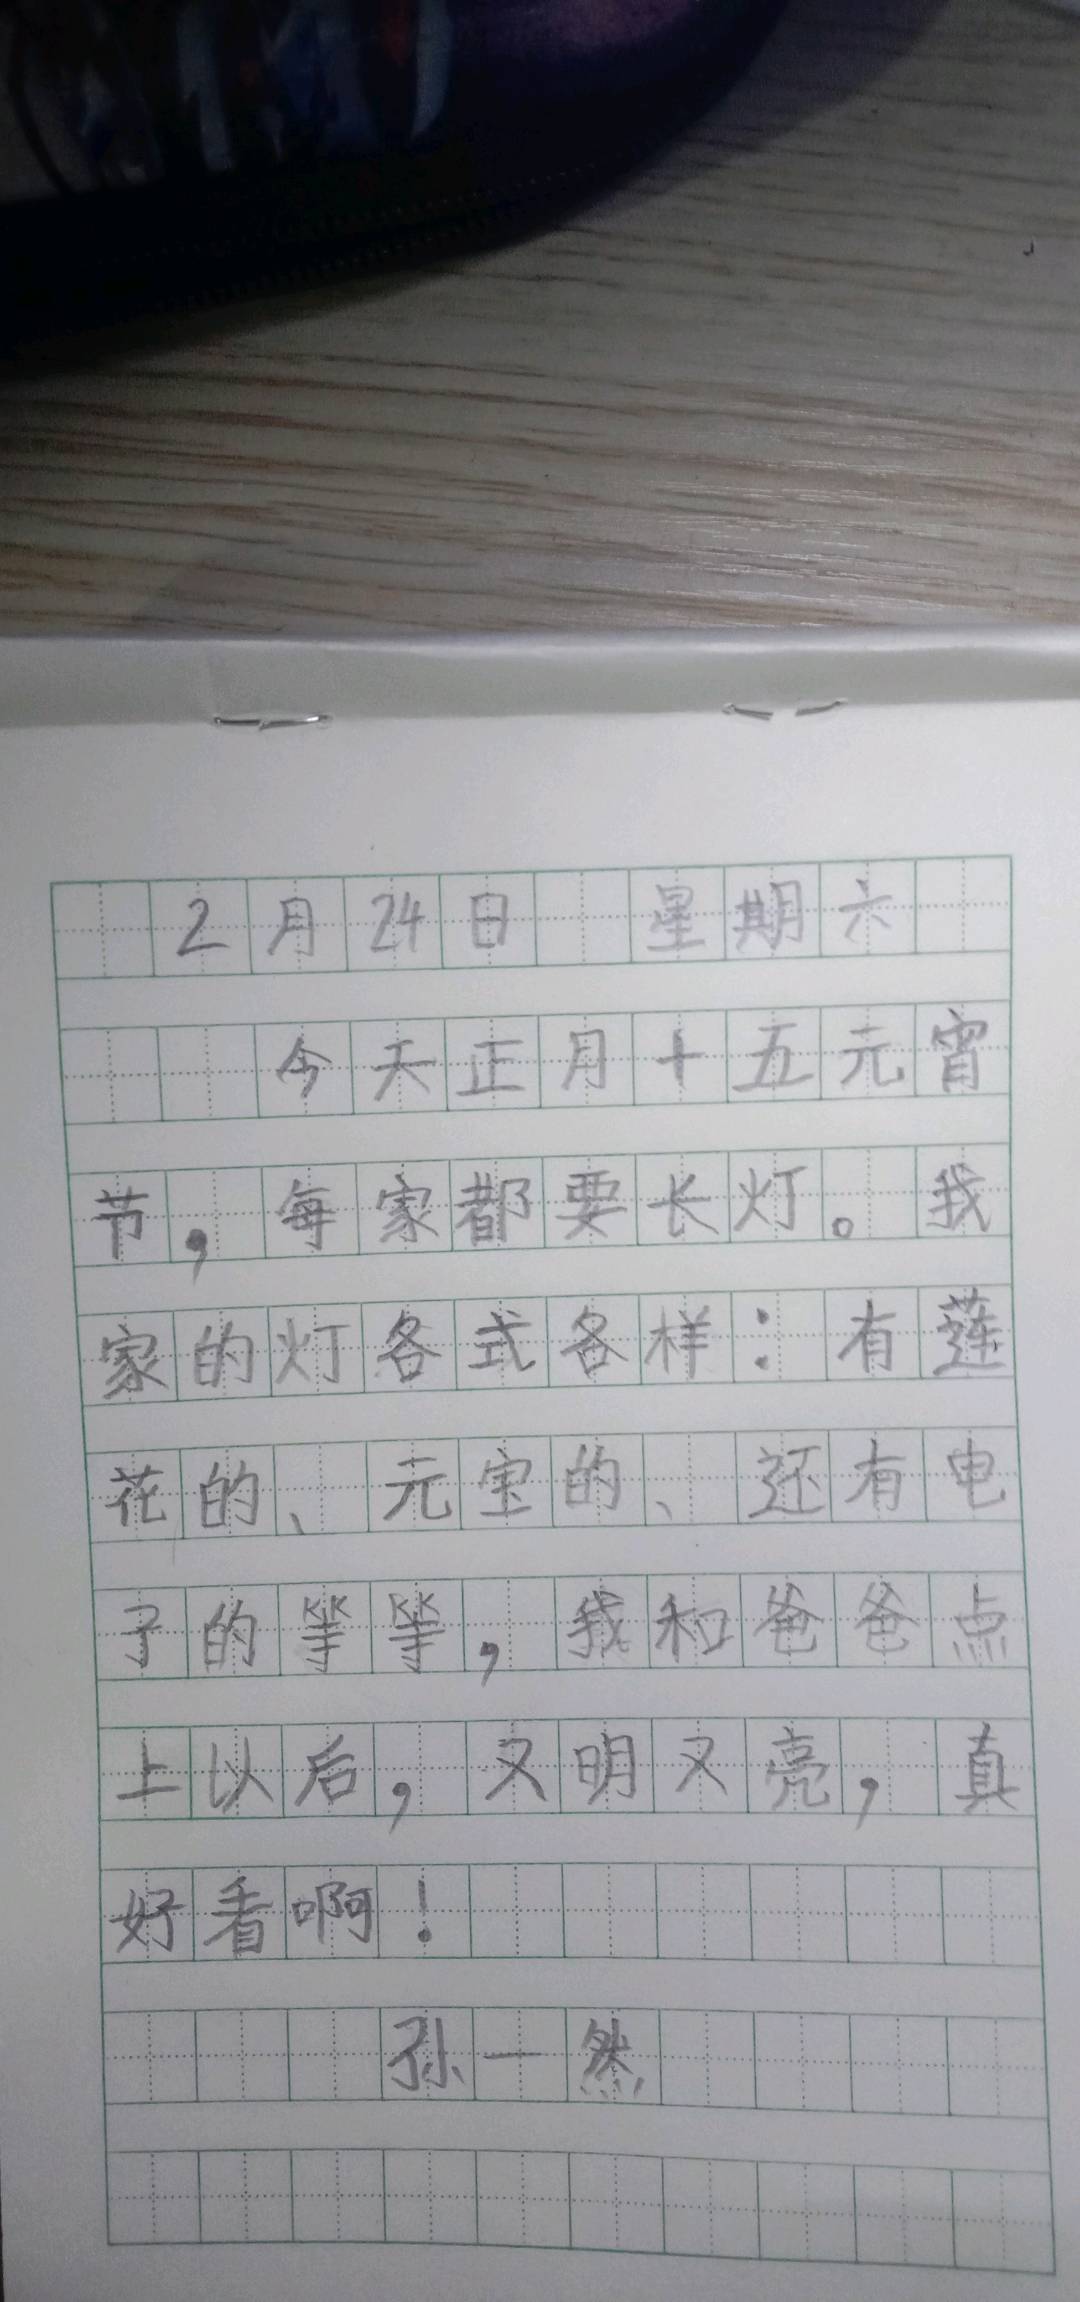 2月24日 星期六
今天正月十五元宵
节，每家都要长灯。我
家的灯各式各样：有莲
花的、元宝的、还有电
子的等等，我和爸爸点
上以后，又明又亮，真
好看啊！
孙一然